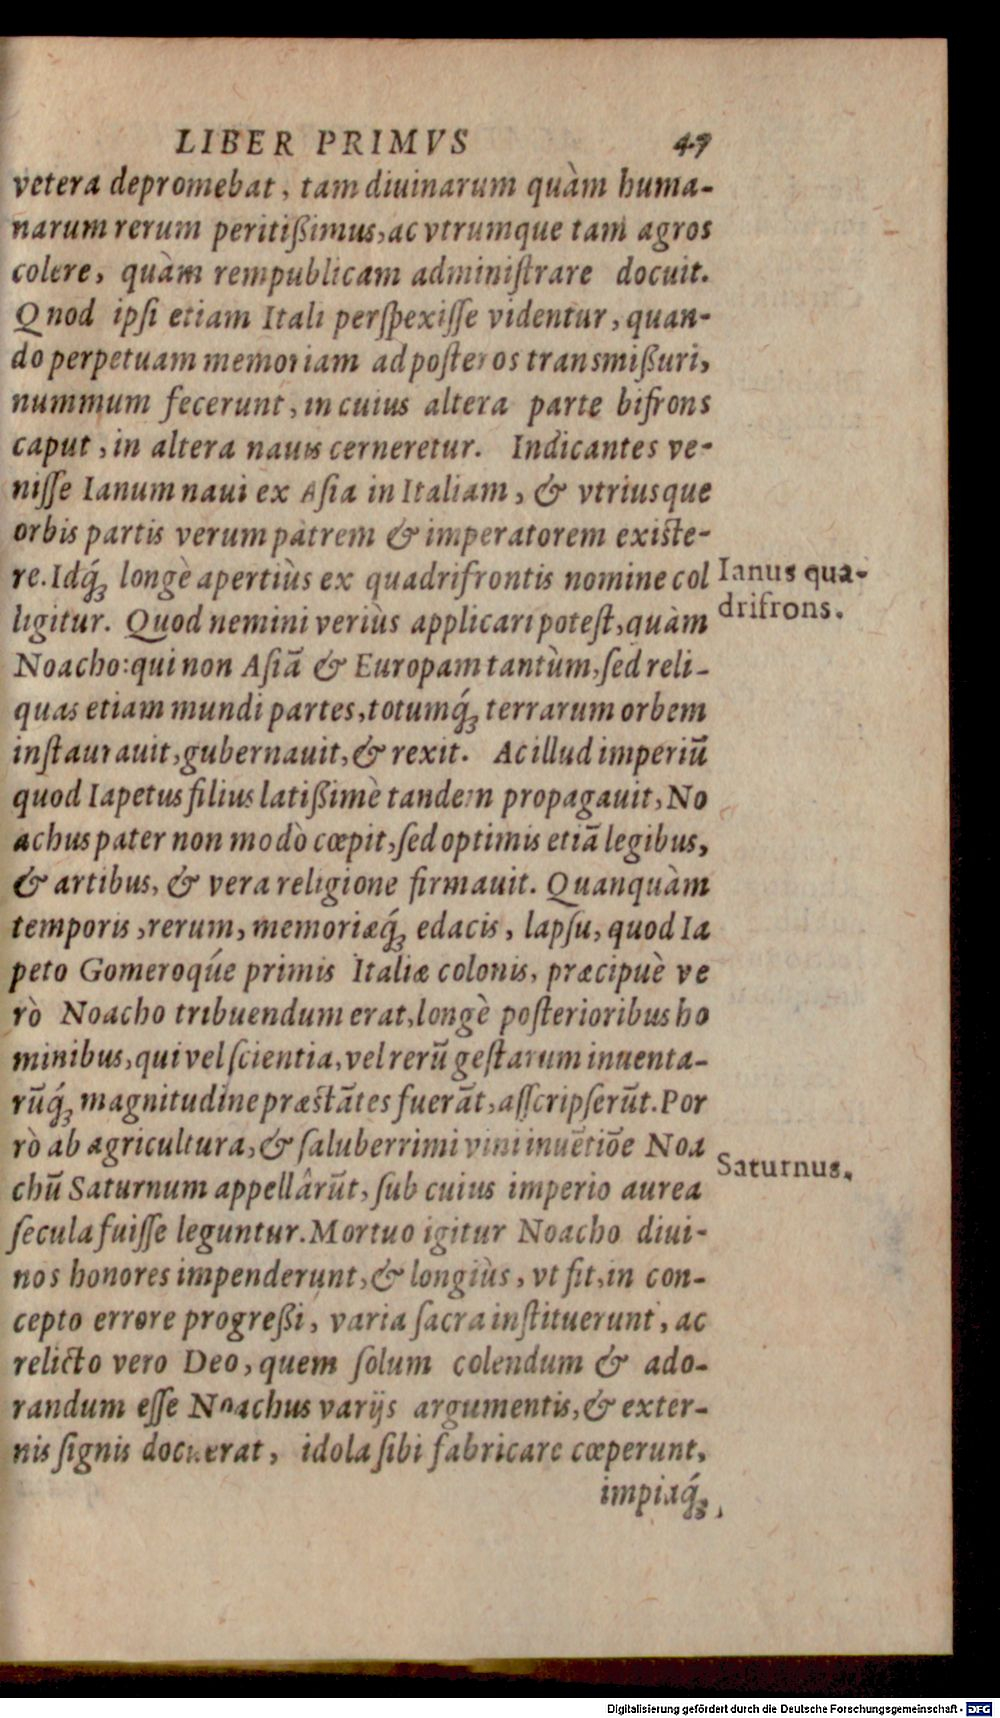 LIBER PRIMVS 47
vetera depromebat, tam diuinarum quàm huma-
narum rerum peritißimus, ac vtrumque tam agros
colere, quàm rempublicam adminiſtrare docuit.
Qnod ipſi etiam Itali perſpexiſſe videntur, quan-
do perpetuam memoriam ad poſteros transmißuri,
nummum fecerunt, in cuius altera parte bifrons
caput, in altera nauis cerneretur. Indicantes ve-
niſſe Ianum naui ex Aſia in Italiam, & vtriusque
orbis partis verum patrem & imperatorem exiſte-
re. Idq́ꝫ longè apertiùs ex quadrifrontis nomine col
Ianus qua-
drifrons.
ligitur. Quod nemini veriùs applicari poteſt, quàm
Noacho: qui non Aſiā & Europam tantùm, ſed reli-
quas etiam mundi partes, totumq́ꝫ terrarum orbem
inſtaurauit, gubernauit, & rexit. Ac illud imperiū
quod Iapetus filius latißimè tandem propagauit, No
achus pater non modò cœpit, ſed optimis etiā legibus,
& artibus, & vera religione firmauit. Quanquàm
temporis, rerum, memoriæq́ꝫ edacis, lapſu, quod Ia
peto Gomeroqúe primis Italiæ colonis, præcipuè ve
rò Noacho tribuendum erat, longè poſterioribus ho
minibus, qui vel ſcientia, vel rerū geſtarum inuenta-
rūq́ꝫ magnitudine præſtātes fuerāt, aſſcripſerūt. Por
rò ab agricultura, & ſaluberrimi vini inuētiōe Noa
Saturnus.
chū Saturnum appellârūt, ſub cuius imperio aurea
ſecula fuiſſe leguntur. Mortuo igitur Noacho diui-
nos honores impenderunt, & longiùs, vt fit, in con-
cepto errore progreßi, varia ſacra inſtituerunt, ac
relicto vero Deo, quem ſolum colendum & ado-
randum eſſe Noachus varijs argumentis, & exter-
nis ſignis docuerat, idola ſibi fabricare cœperunt,
impiaq́ꝫ,
Digitalisierung gefördert durch die Deutsche Forschungsgemeinschaft - DFG